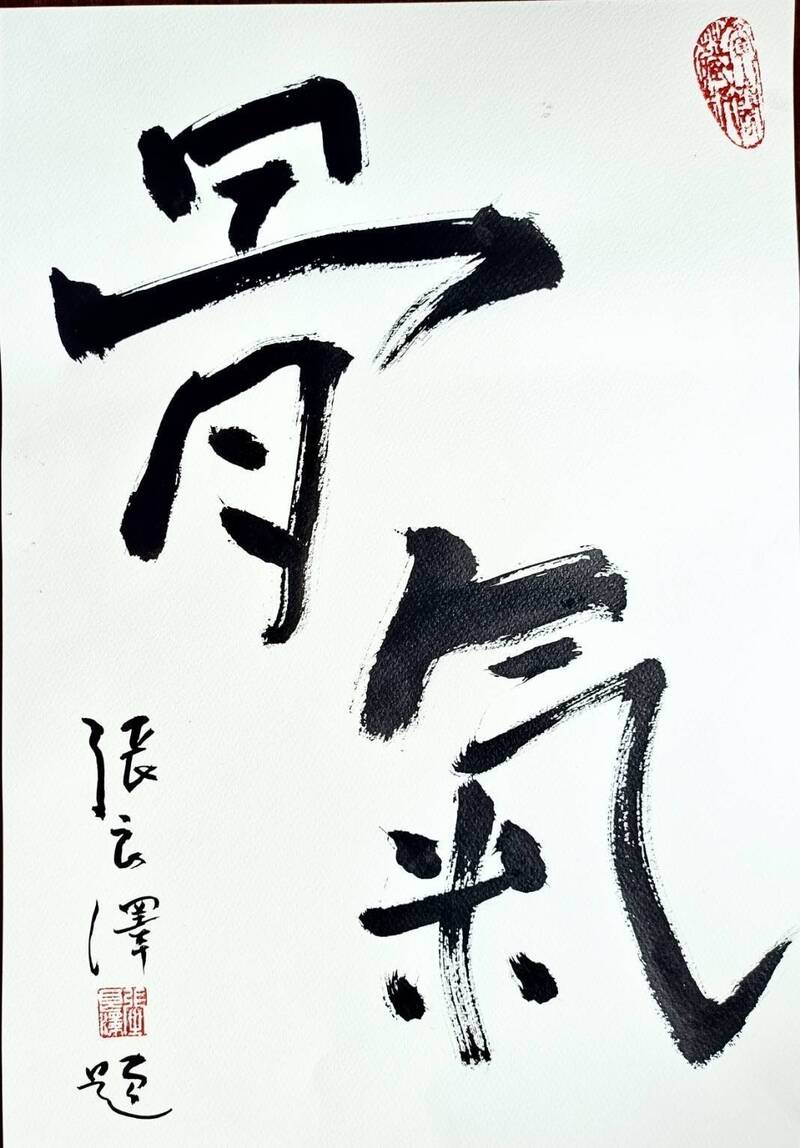 骨氣
張良澤
題